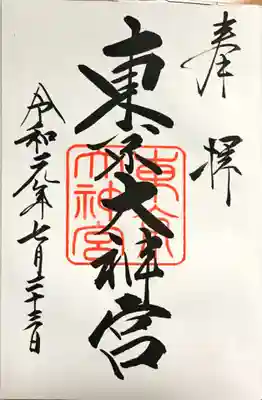 奉拝
東京大神宮
東京大神宮
令和元年七月二十三日